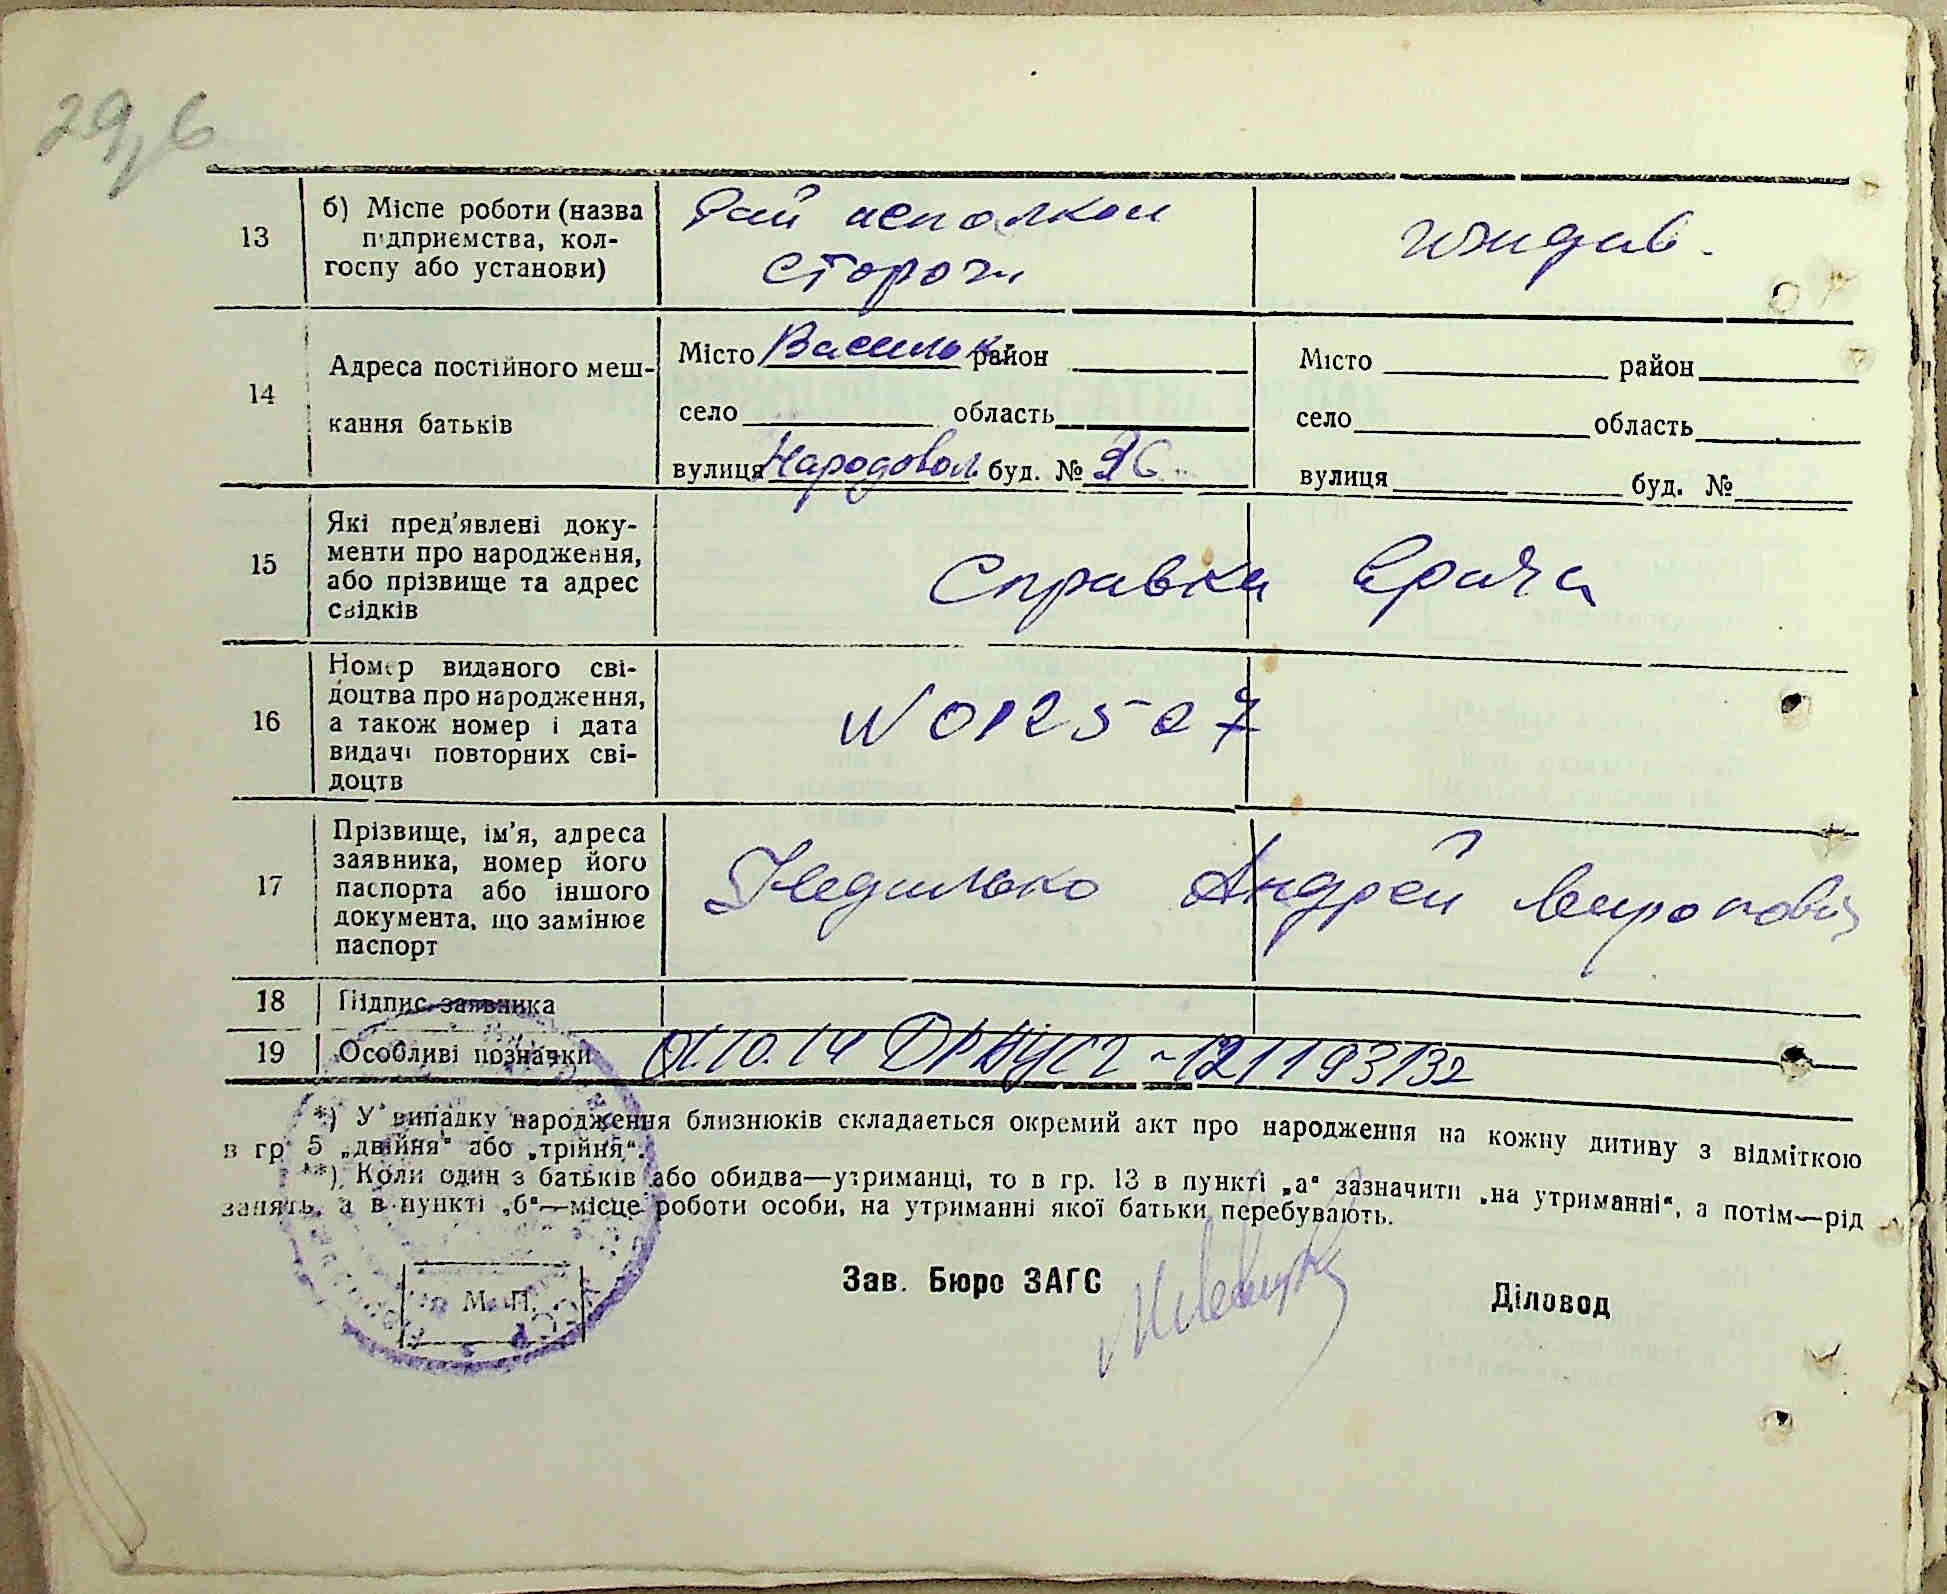 29,6
13
б) Місце роботи (назва
підприємства, кол-
госпу або установи)
Рай исполком
сторож
иждив.
14
Адреса постійного меш-
кання батьків
Місто Васильк район
село область
вулиця Народовол буд. № 26
Місто район
село область
вулиця буд. №
15
Які пред'явлені доку-
менти про народження,
або прізвище та адрес
свідків
Справка врача
16
Номер виданого сві-
доцтва про народження,
а також номер і дата
видачі повторних сві-
доцтв
N 012527
17
Прізвище, ім'я, адреса
заявника, номер його
паспорта або іншого
документа, що замінює
паспорт
Недилько Андрей Миронович
18
Підпис заявника
19
Особливі позначки
01.10.14 121193132
*) У випадку народження близнюків складається окремий акт про народження на кожну дитину з відміткою
в гр. 5 „двійня" або „трійня".
**) Коли один з батьків або обидва—утриманці, то в гр. 13 в пункті „а" зазначити „на утриманні", а потім—рід
занять, а в пункті „б"—місце роботи особи, на утриманні якої батьки перебувають.
М. П.
Зав. Бюро ЗАГС
Діловод